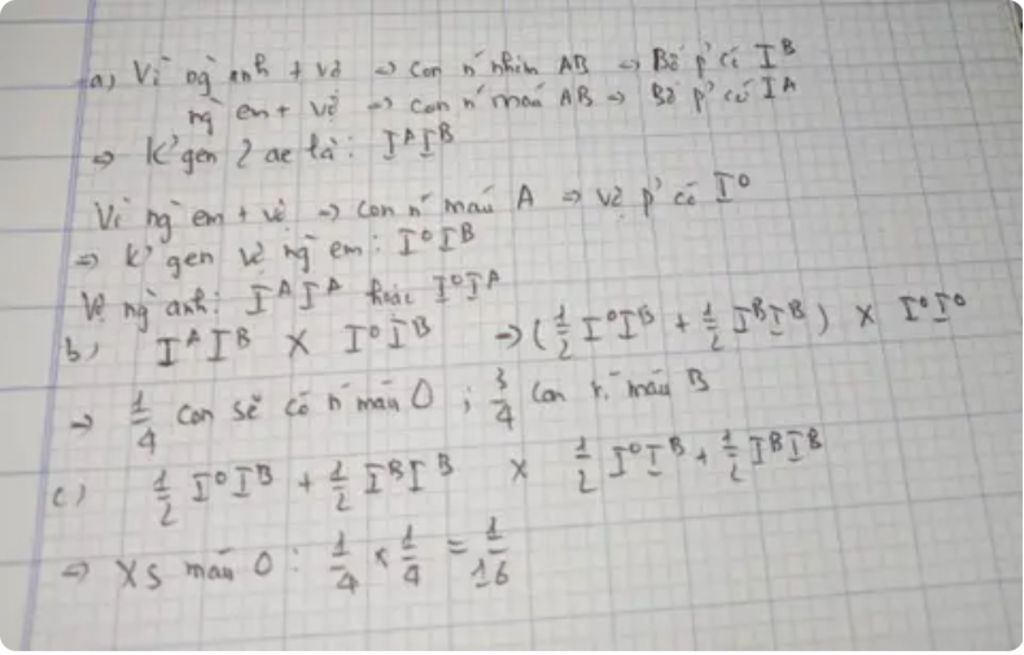 a) Vì ng` anh + vợ => con n´ nhím AB => Bố p' có I^B
ng` em + vợ => con n´ máu AB => Bố p' có I^A
=> K' gen 2 ae là: I^A I^B
Vì ng` em + vợ => con n´ máu A => vợ p' có I^O
=> K' gen vợ ng` em: I^O I^B
Vợ ng` anh: I^A I^A hoặc I^O I^A
b) I^A I^B X I^O I^B -> (1/2 I^O I^B + 1/2 I^B I^B) X I^O I^O
=> 1/4 con sẽ có n´ máu O ; 3/4 con n´ máu B
c) 1/2 I^O I^B + 1/2 I^B I^B X 1/2 I^O I^B + 1/2 I^B I^B
=> XS máu O : 1/4 x 1/4 = 1/16